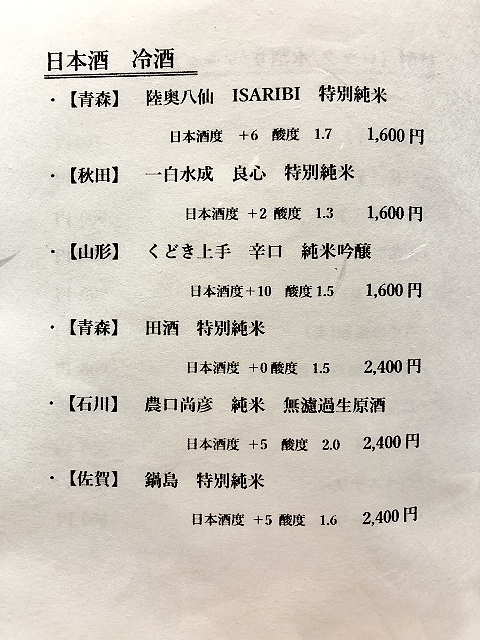 日本酒　冷酒
・【青森】　陸奥八仙　ISARIBI　特別純米
日本酒度　+6　酸度　1.7　1,600円
・【秋田】　一白水成　良心　特別純米
日本酒度　+2　酸度　1.3　1,600円
・【山形】　くどき上手　辛口　純米吟醸
日本酒度+10　酸度 1.5　1,600円
・【青森】　田酒　特別純米
日本酒度　+0 酸度　1.5　2,400円
・【石川】　農口尚彦　純米　無濾過生原酒
日本酒度　+5　酸度　2.0　2,400円
・【佐賀】　鍋島　特別純米
日本酒度　+5 酸度　1.6　2,400円